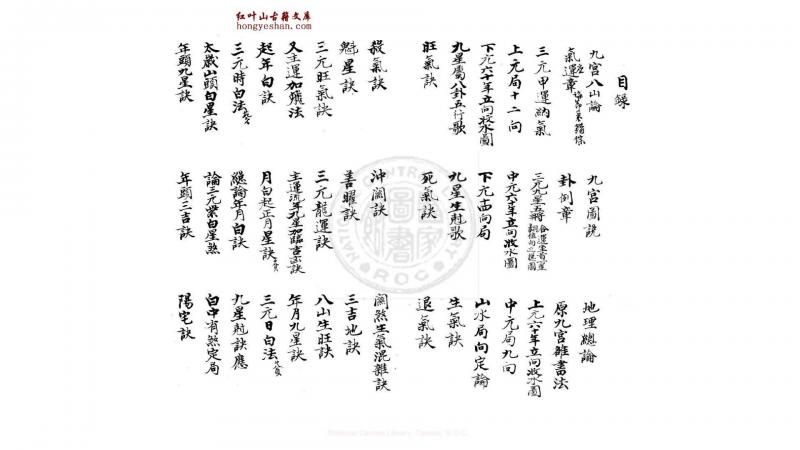 红叶山古籍文库
hongyeshan.com
目錄
九宮八山論
九宮圖說
地理總論
氣運章
卦例章
原九宮雒書法
三元甲運納氣
三元九星五將
上元六十年立向收水圖
上元局十二向
中元六十年立向收水圖
中元局九向
下元六十年立向收水圖
下元局
山水局向定論
九星屬八卦五行歌
九星生尅歌
生氣訣
旺氣訣
死氣訣
退氣訣
殺氣訣
沖關訣
關煞生氣混雜訣
魁星訣
善曜訣
三吉地訣
三元旺氣訣
三元龍運訣
八山生旺訣
又主運加飛法
主運流年九星加臨吉凶訣
年月九星訣
起年白訣
月白起正月星訣
三元日白法
三元時白法
總論年月白訣
九星尅訣應
太歲山頭白星訣
論三元紫白星煞
白中有煞定局
年頭九星訣
年頭三吉訣
陽宅訣
National Central Library, Taiwan, R.O.C.